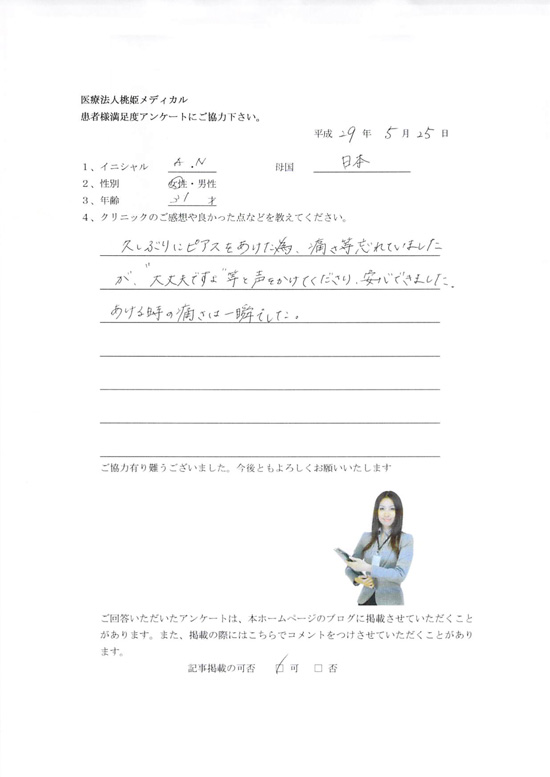 医療法人桃姫メディカル
患者様満足度アンケートにご協力下さい。
平成 29 年 5 月 25 日
1、イニシャル A.N 母国 日本
2、性別 女性・男性
3、年齢 31 才
4、クリニックのご感想や良かった点などを教えてください。
久しぶりにピアスをあけた為、痛さ等忘れていました
が、"大丈夫ですよ"等と声をかけてくださり、安心できました。
あける時の痛さは一瞬でした。
ご協力有り難うございました。今後ともよろしくお願いいたします
ご回答いただいたアンケートは、本ホームページのブログに掲載させていただくこと
があります。また、掲載の際にはこちらでコメントをつけさせていただくことがあり
ます。
記事掲載の可否 ☑ 可 □ 否